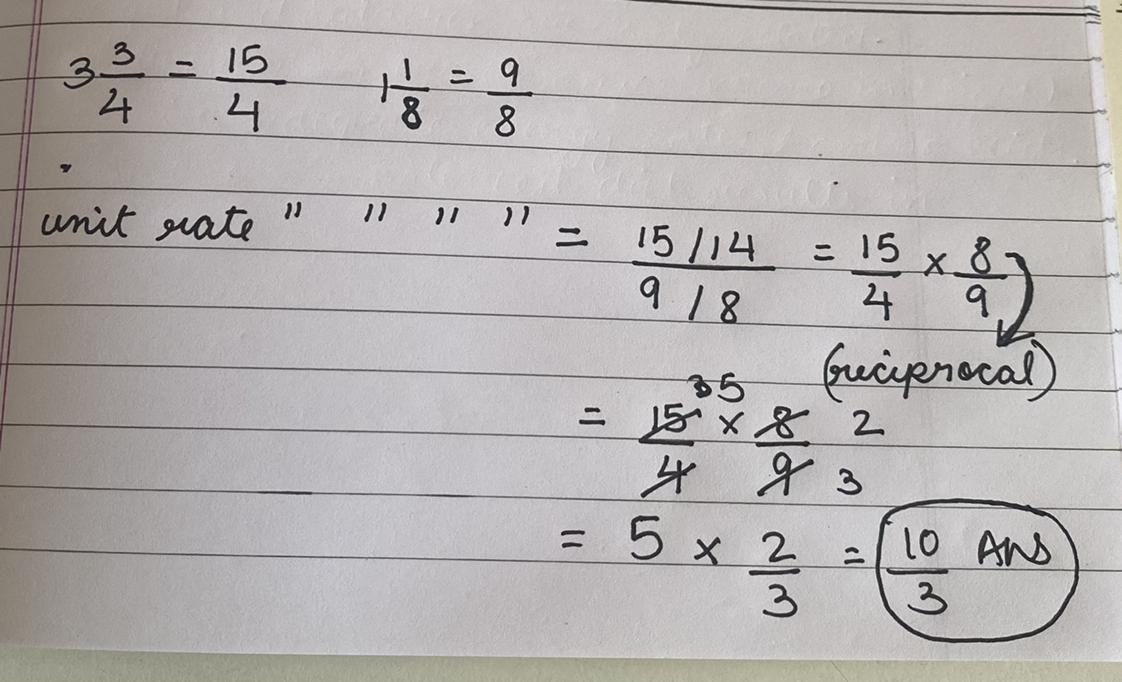 3 3/4 = 15/4 1 1/8 = 9/8
unit rate " " " " = 15/14 / 9/8 = 15/4 × 8/9
(reciprocal)
35
= 15/4 × 8/9 2
3
= 5 × 2/3 = 10/3 Ans